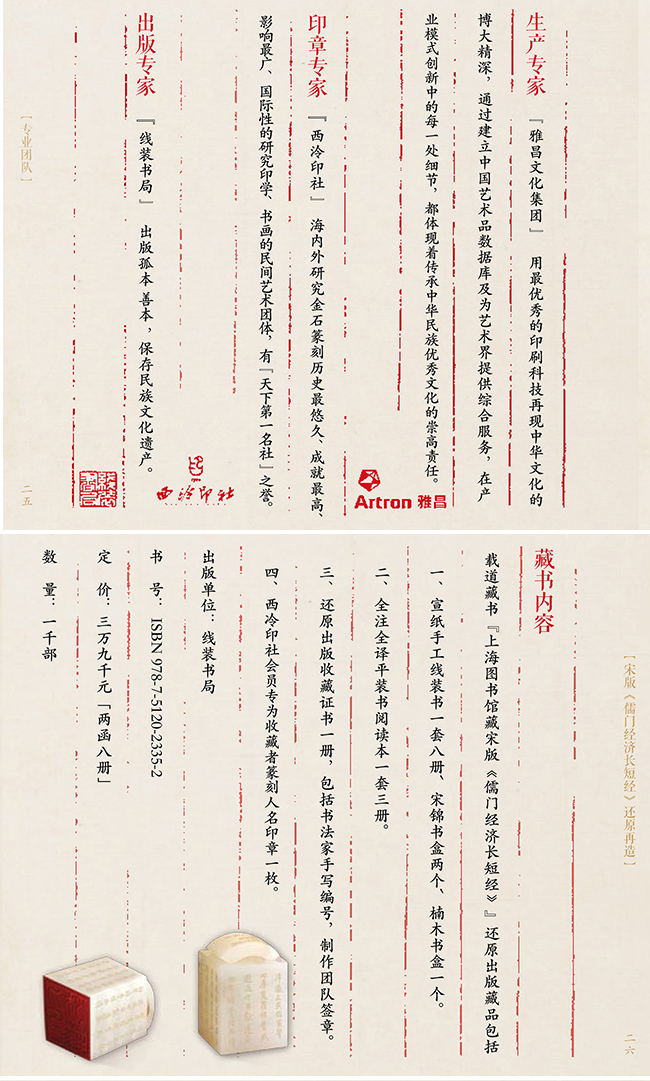 生产专家
『雅昌文化集团』 用最优秀的印刷科技再现中华文化的
博大精深，通过建立中国艺术品数据库及为艺术界提供综合服务，在产
业模式创新中的每一处细节，都体现着传承中华民族优秀文化的崇高责任。
Artron 雅昌
印章专家
『西泠印社』 海内外研究金石篆刻历史最悠久、成就最高、
影响最广、国际性的研究印学、书画的民间艺术团体，有『天下第一名社』之誉。
西泠印社
出版专家
『线装书局』 出版孤本善本，保存民族文化遗产。
［专业团队］
二五
［宋版《儒门经济长短经》还原再造］
二六
藏书内容
载道藏书『上海图书馆藏宋版《儒门经济长短经》』还原出版藏品包括
一、宣纸手工线装书一套八册、宋锦书盒两个、楠木书盒一个。
二、全注全译平装书阅读本一套三册。
三、还原出版收藏证书一册，包括书法家手写编号，制作团队签章。
四、西泠印社会员专为收藏者篆刻人名印章一枚。
出版单位：线装书局
书 号：ISBN 978-7-5120-2335-2
定 价：三万九千元「两函八册」
数 量：一千部